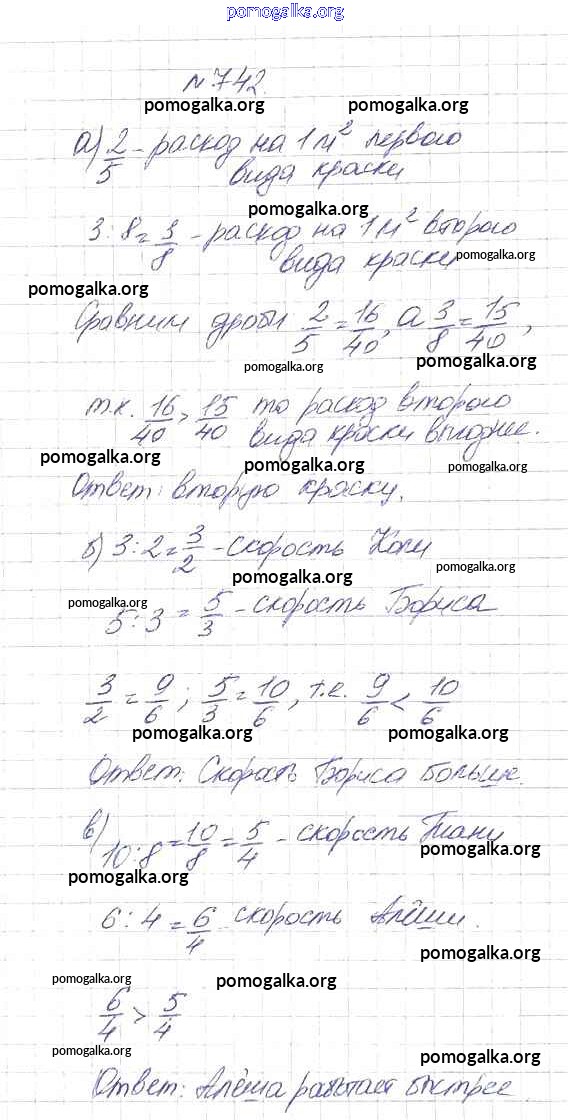 pomogalka.org
№742.
pomogalka.org pomogalka.org
а) 2/5 - расход на 1 м² первого
вида краски
pomogalka.org
3 : 8 = 3/8 - расход на 1 м² второго
вида краски pomogalka.org
pomogalka.org
Сравним дроби 2/5 = 16/40, а 3/8 = 15/40,
pomogalka.org pomogalka.org
т.к. 16/40 > 15/40 то расход второго
вида краски выгоднее.
pomogalka.org pomogalka.org pomogalka.org
Ответ: вторую краску.
б) 3 : 2 = 3/2 - скорость Коли
pomogalka.org pomogalka.org
pomogalka.org
5 : 3 = 5/3 - скорость Бориса
3/2 = 9/6 ; 5/3 = 10/6, т.е. 9/6 < 10/6
pomogalka.org pomogalka.org
Ответ: Скорость Бориса больше.
в) 10 : 8 = 10/8 = 5/4 - скорость Тани
pomogalka.org
pomogalka.org
6 : 4 = 6/4 скорость Алёши.
pomogalka.org
pomogalka.org pomogalka.org
6/4 > 5/4
pomogalka.org pomogalka.org
Ответ: Алёша работает быстрее